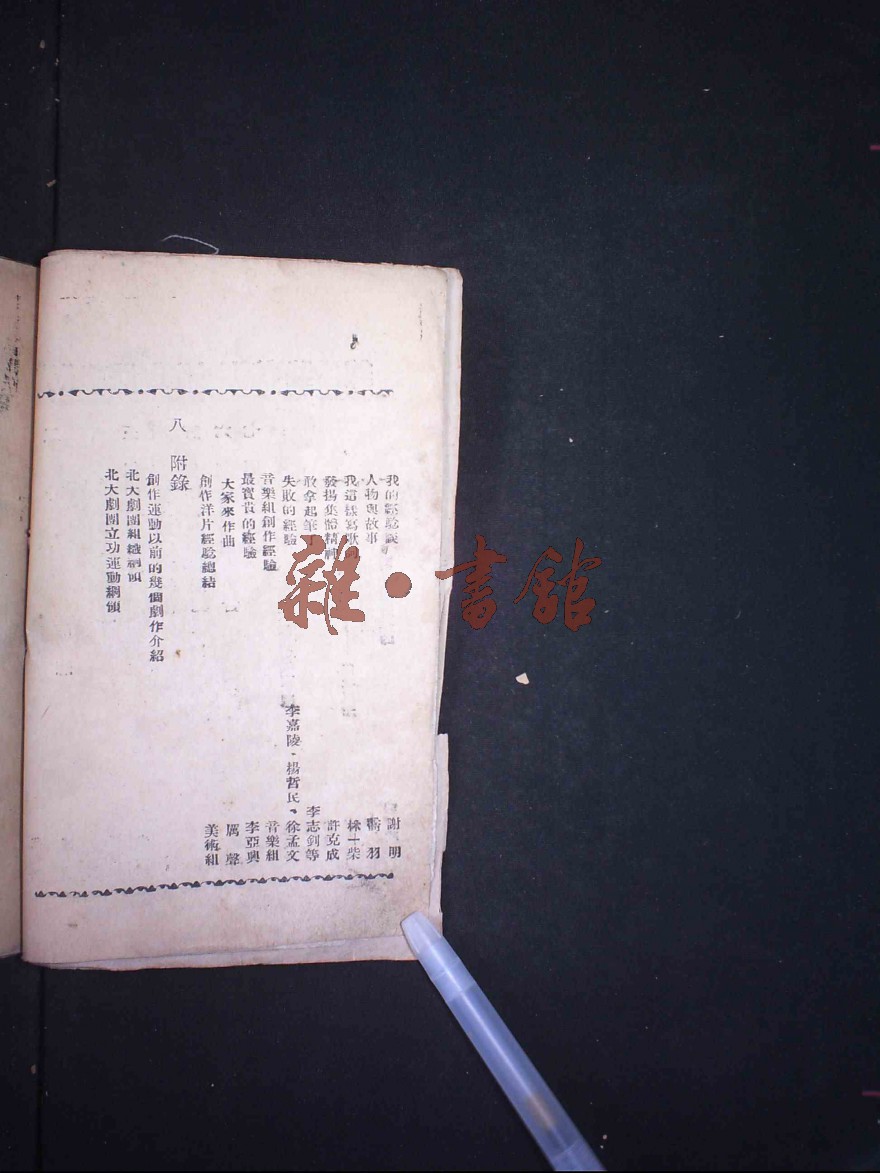 我的經驗談 謝明
人物與故事 喬羽
我這樣寫歌詞 林一柴
發揚集體精神 許克成
敢拿起筆 李志釗等
失敗的經驗 李嘉陵、楊哲民、徐孟文
音樂組創作經驗 音樂組
最寶貴的經驗 李亞輿
大家來作曲 厲聲
創作洋片經驗總結 美術組
八 附錄
創作運動以前的幾個劇作介紹
北大劇團組織綱領
北大劇團立功運動綱領
雜·書館